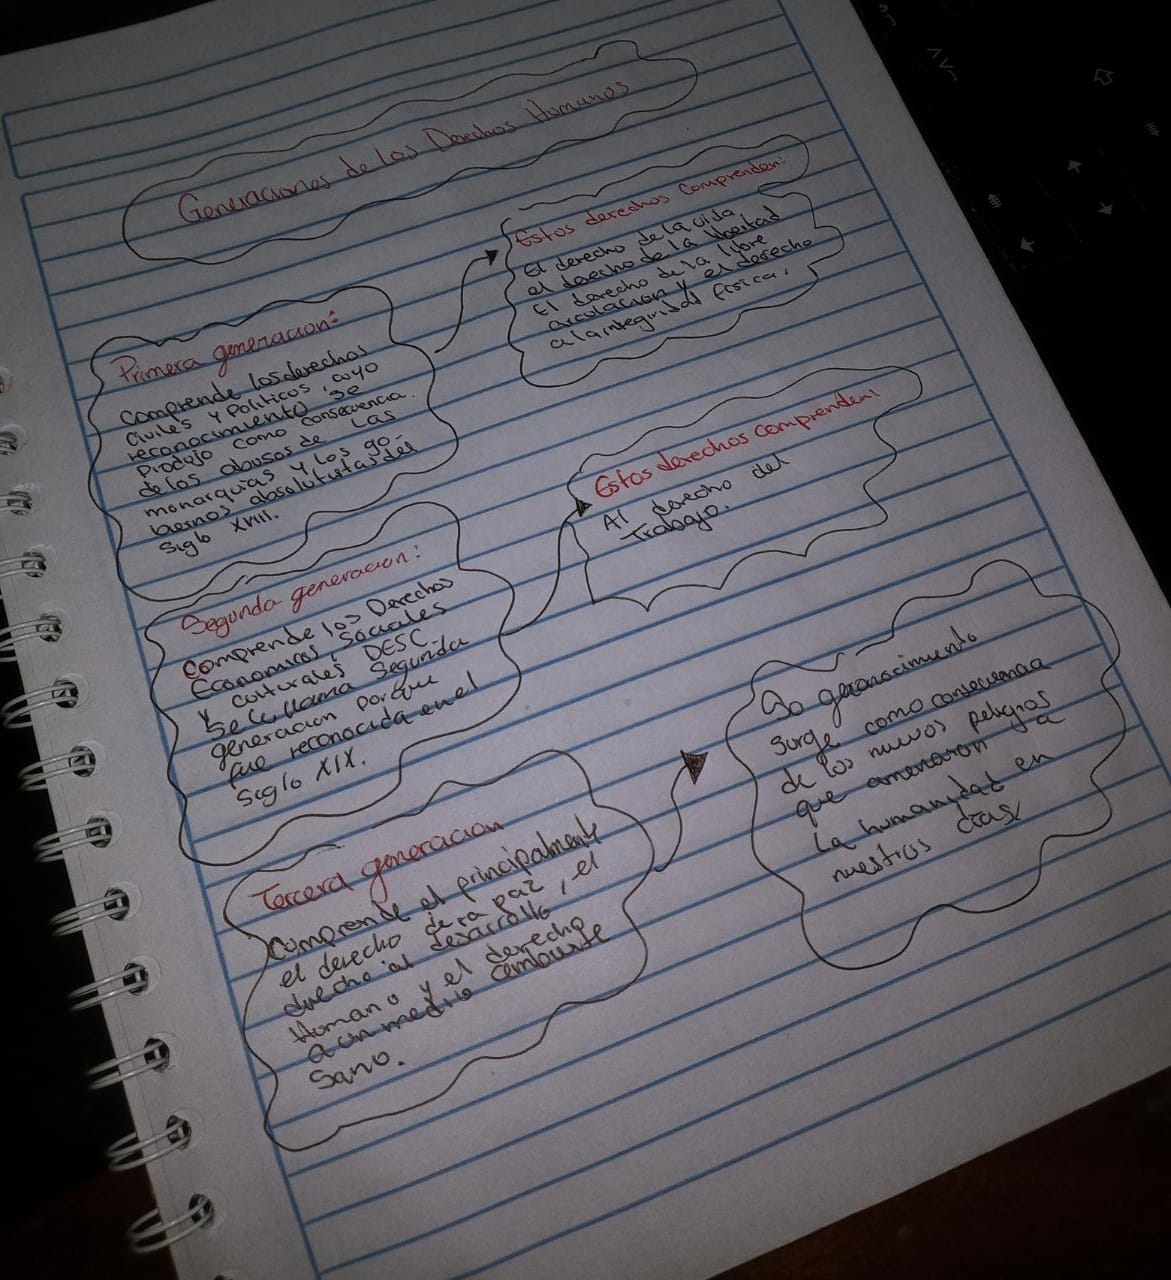 Generaciones de los Derechos Humanos
Primera generacion:
Comprende los derechos
Civiles y Politicos, cuyo
reconocimiento se
Produjo como consecuencia.
de los abusos de las
monarquias y los go-
biernos absolutistas del
Siglo XVIII.
Estos derechos Comprenden:
El derecho de la vida
el derecho de la libertad
El derecho de la libre
circulacion y el derecho
a la integridad fisica,
Segunda generacion:
Comprende los Derechos
Economicos, Sociales
y culturales DESC.
Se le llama Segunda
generacion porque
fue reconocida en el
Siglo XIX.
Estos derechos comprenden:
Al derecho del
Trabajo.
Tercera generacion
Comprende el principalmente
el derecho de la paz, el
derecho al desarrollo
Humano y el derecho
a un medio ambiente
Sano.
So
surge como consecuencia
de los nuevos peligros
que amenazan a
la humanidad en
nuestros dias